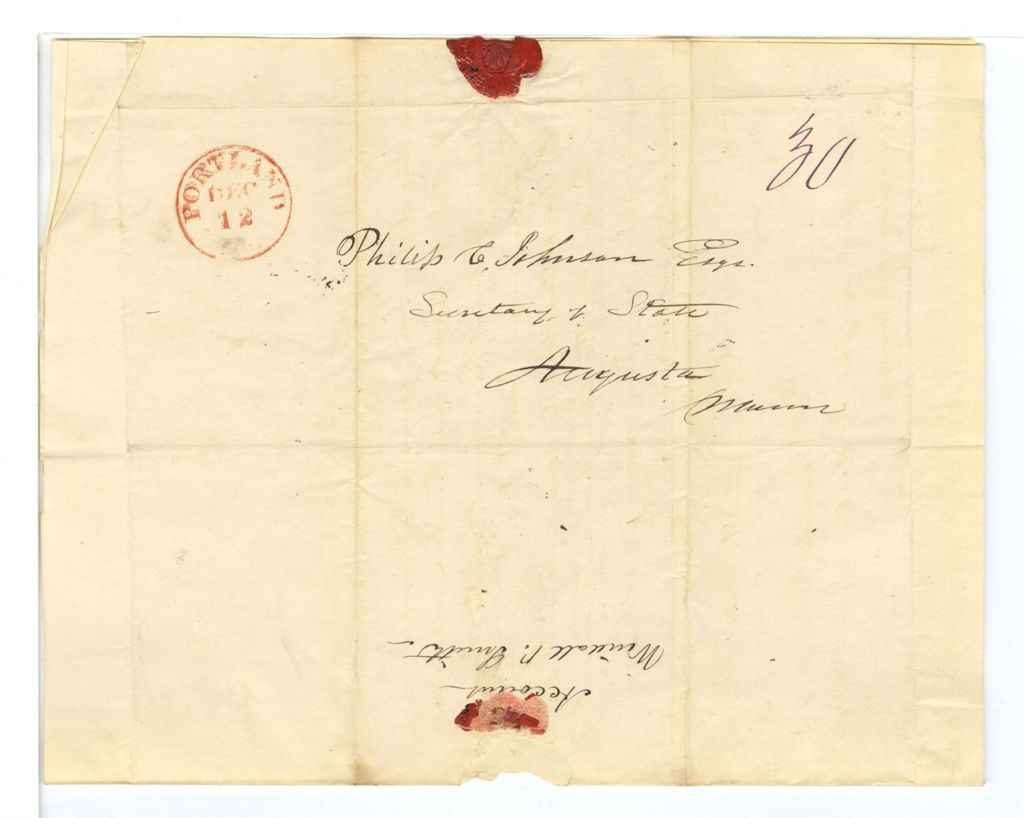 PORTLAND
DEC
12
30
Philip C. Johnson Esqr.
Secretary of State
Augusta
Maine
Account
Wendall P. Smith